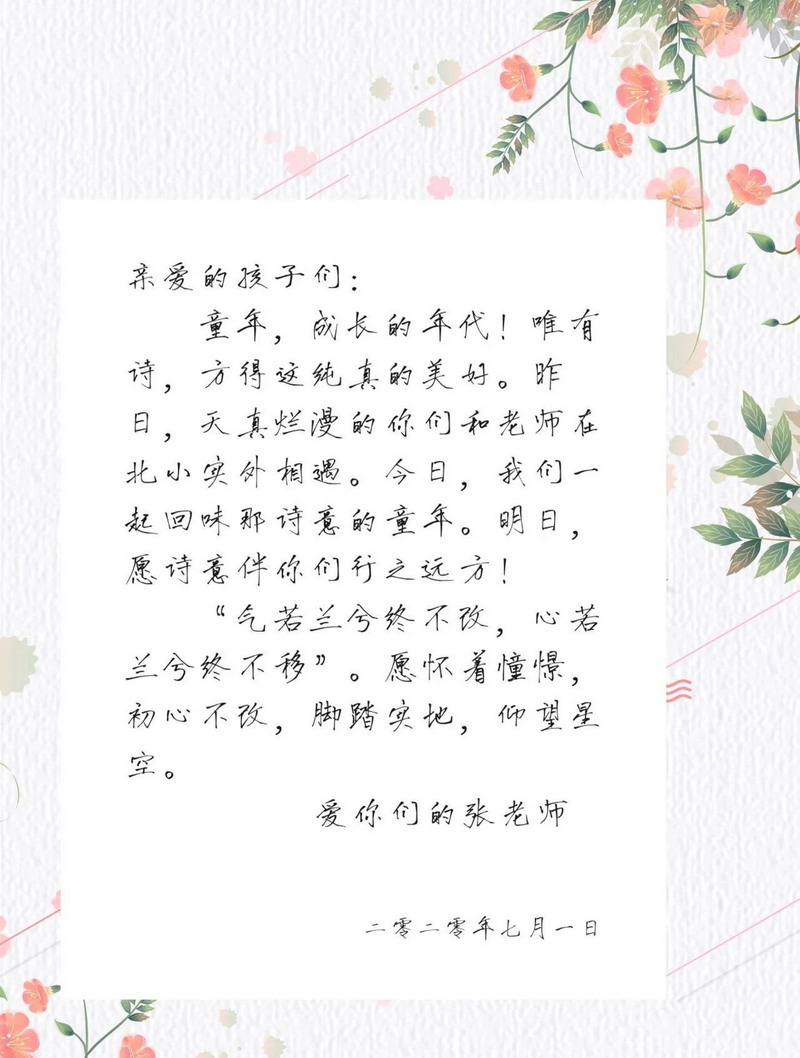 亲爱的孩子们：
童年，成长的年代！唯有
诗，方得这纯真的美好。昨
日，天真烂漫的你们和老师在
北小实外相遇。今日，我们一
起回味那诗意的童年。明日，
愿诗意伴你们行之远方！
“气若兰兮终不改，心若
兰兮终不移”。愿怀着憧憬，
初心不改，脚踏实地，仰望星
空。
爱你们的张老师
二零二零年七月一日